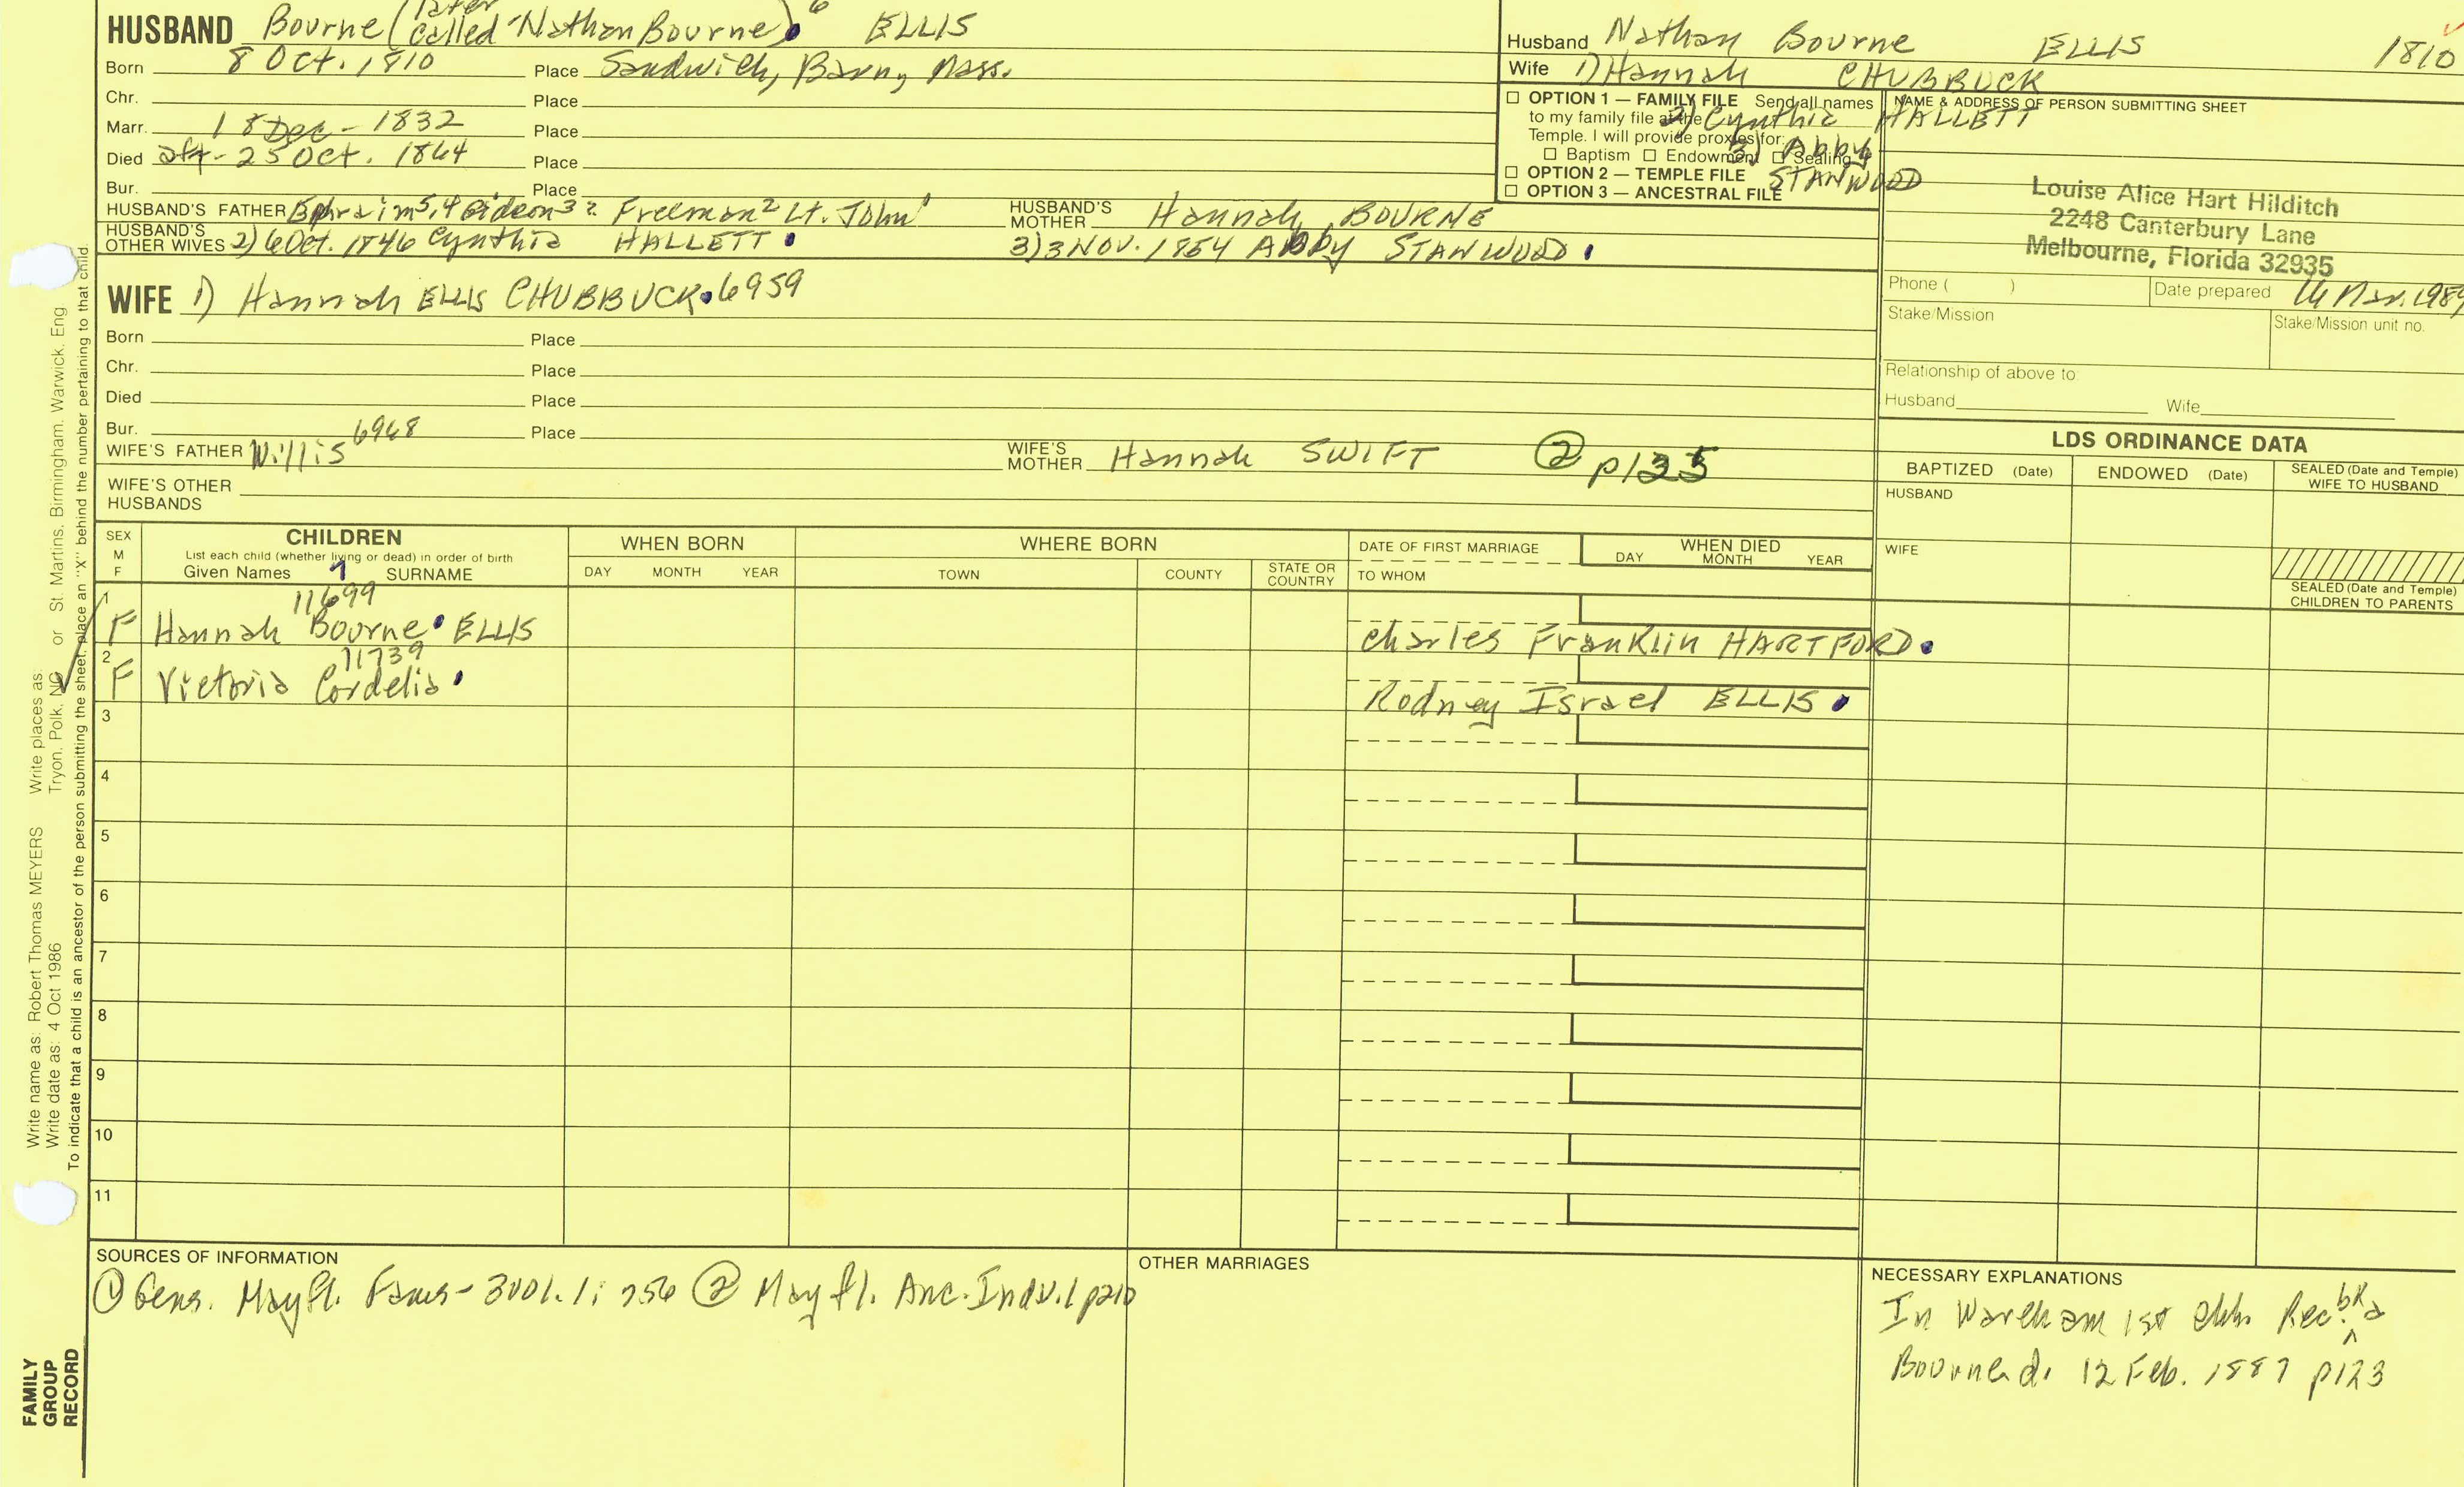 later
HUSBAND Bourne (called "Nathan Bourne") 6 ELLIS
Born 8 Oct. 1810 Place Sandwich, Barn, Mass.
Chr. Place
Marr. 18 Dec - 1832 Place
Died aft - 25 Oct. 1864 Place
Bur. Place
HUSBAND'S FATHER Ephraim5,4 Gideon3 2 Freeman2 Lt. John1 HUSBAND'S MOTHER Hannah BOURNE
HUSBAND'S OTHER WIVES 2) 6 Oct. 1846 Cynthia HALLETT 3) 3 NOV. 1854 Abby STANWOOD
Husband Nathan Bourne ELLIS 1810
Wife 1) Hannah CHUBBUCK
2) Cynthia HALLETT
3) Abby STANWOOD
☐ OPTION 1 — FAMILY FILE Send all names
to my family file at the
Temple. I will provide proxies for:
☐ Baptism ☐ Endowment ☐ Sealing
☐ OPTION 2 — TEMPLE FILE
☐ OPTION 3 — ANCESTRAL FILE
NAME & ADDRESS OF PERSON SUBMITTING SHEET
Louise Alice Hart Hilditch
2248 Canterbury Lane
Melbourne, Florida 32935
Phone ( ) Date prepared 14 Mar. 1989
Stake/Mission Stake/Mission unit no.
Relationship of above to:
Husband Wife
WIFE 1) Hannah ELLIS CHUBBUCK 6959
Born Place
Chr. Place
Died Place
Bur. Place
6968
WIFE'S FATHER Willis WIFE'S MOTHER Hannah SWIFT ② p135
WIFE'S OTHER
HUSBANDS
LDS ORDINANCE DATA
BAPTIZED (Date) ENDOWED (Date) SEALED (Date and Temple) WIFE TO HUSBAND
HUSBAND
WIFE
SEALED (Date and Temple)
CHILDREN TO PARENTS
SEX M F CHILDREN WHEN BORN WHERE BORN DATE OF FIRST MARRIAGE WHEN DIED
List each child (whether living or dead) in order of birth
Given Names SURNAME DAY MONTH YEAR TOWN COUNTY STATE OR COUNTRY TO WHOM DAY MONTH YEAR
11699
1 F Hannah Bourne ELLIS Charles Franklin HARTFORD
11739
2 F Victoria Cordelia Rodney Israel ELLIS
3
4
5
6
7
8
9
10
11
SOURCES OF INFORMATION
① Gens. Mayfl. Fams - 3vol. 1: 756 ② Mayfl. Anc. Indv. 1 p210
OTHER MARRIAGES
NECESSARY EXPLANATIONS
In Wareham 1st chh. Rec. bk a
Bourne d. 12 Feb. 1887 p123
Write name as: Robert Thomas MEYERS Write places as:
Write date as: 4 Oct 1986 Tryon, Polk, NC or St. Martins, Birmingham, Warwick, Eng
To indicate that a child is an ancestor of the person submitting the sheet, place an "X" behind the number pertaining to that child.
FAMILY
GROUP
RECORD